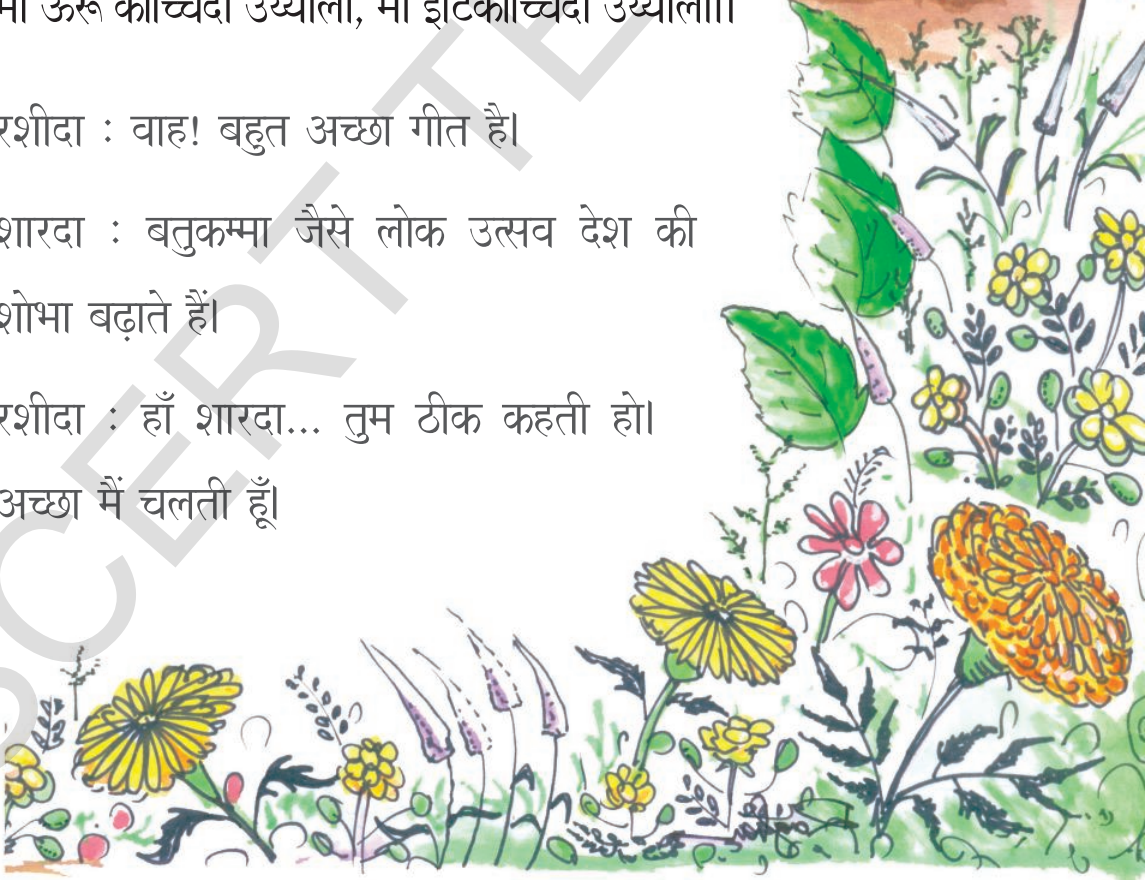 मा ऊरू कोच्चिंदी उय्यालो, मा इंटिकोच्चिंदी उय्यालो॥
रशीदा : वाह! बहुत अच्छा गीत है।
शारदा : बतुकम्मा जैसे लोक उत्सव देश की
शोभा बढ़ाते हैं।
रशीदा : हाँ शारदा... तुम ठीक कहती हो।
अच्छा मैं चलती हूँ।
SCERT TE